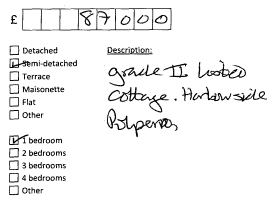 £ 87000
Detached
Semi-detached
Terrace
Maisonette
Flat
Other
Description:
Grade II listed
Cottage. Harbourside
Polperro,
1 bedroom
2 bedrooms
3 bedrooms
4 bedrooms
Other